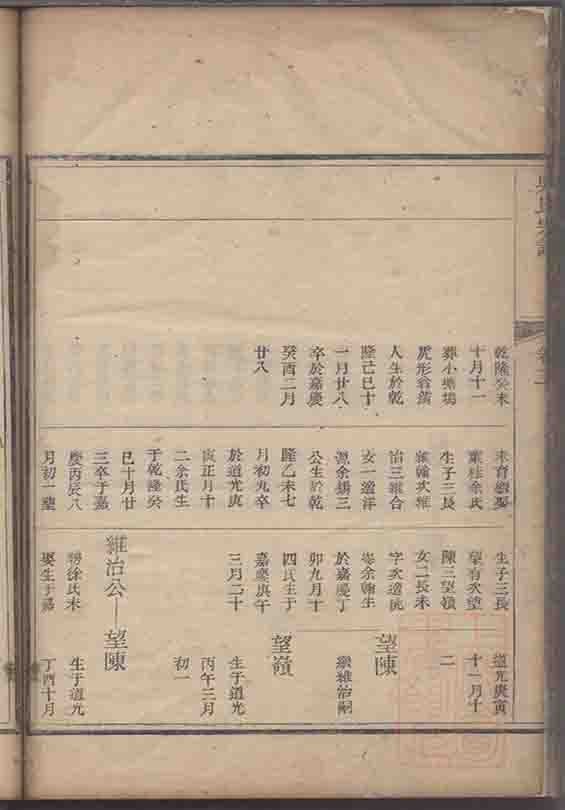 卷二
乾隆癸未
十月十一
葬小塘塢
虎形翁
人生於乾
隆己巳十
一月廿八
卒於嘉慶
癸酉二月
廿八
未育續娶
葉桂余氏
生子三長
維翰次維
治三維合
女一適洋
源余三
公生於乾
隆乙未七
月初九卒
於道光庚
寅正月十
二余氏生
于乾隆癸
巳十月廿
三卒于嘉
慶丙辰八
月初一塟
生子三長
望有次望
陳三望嶺
女二長未
字次適
余翰生
於嘉慶丁
卯九月十
四氏生于
嘉慶庚午
三月二十
道光庚寅
十一月十
二
望陳
繼維治嗣
望嶺
生于道光
丙午三月
初一
維治公—望陳
聘徐氏未
娶生于嘉
生于道光
丁酉十月